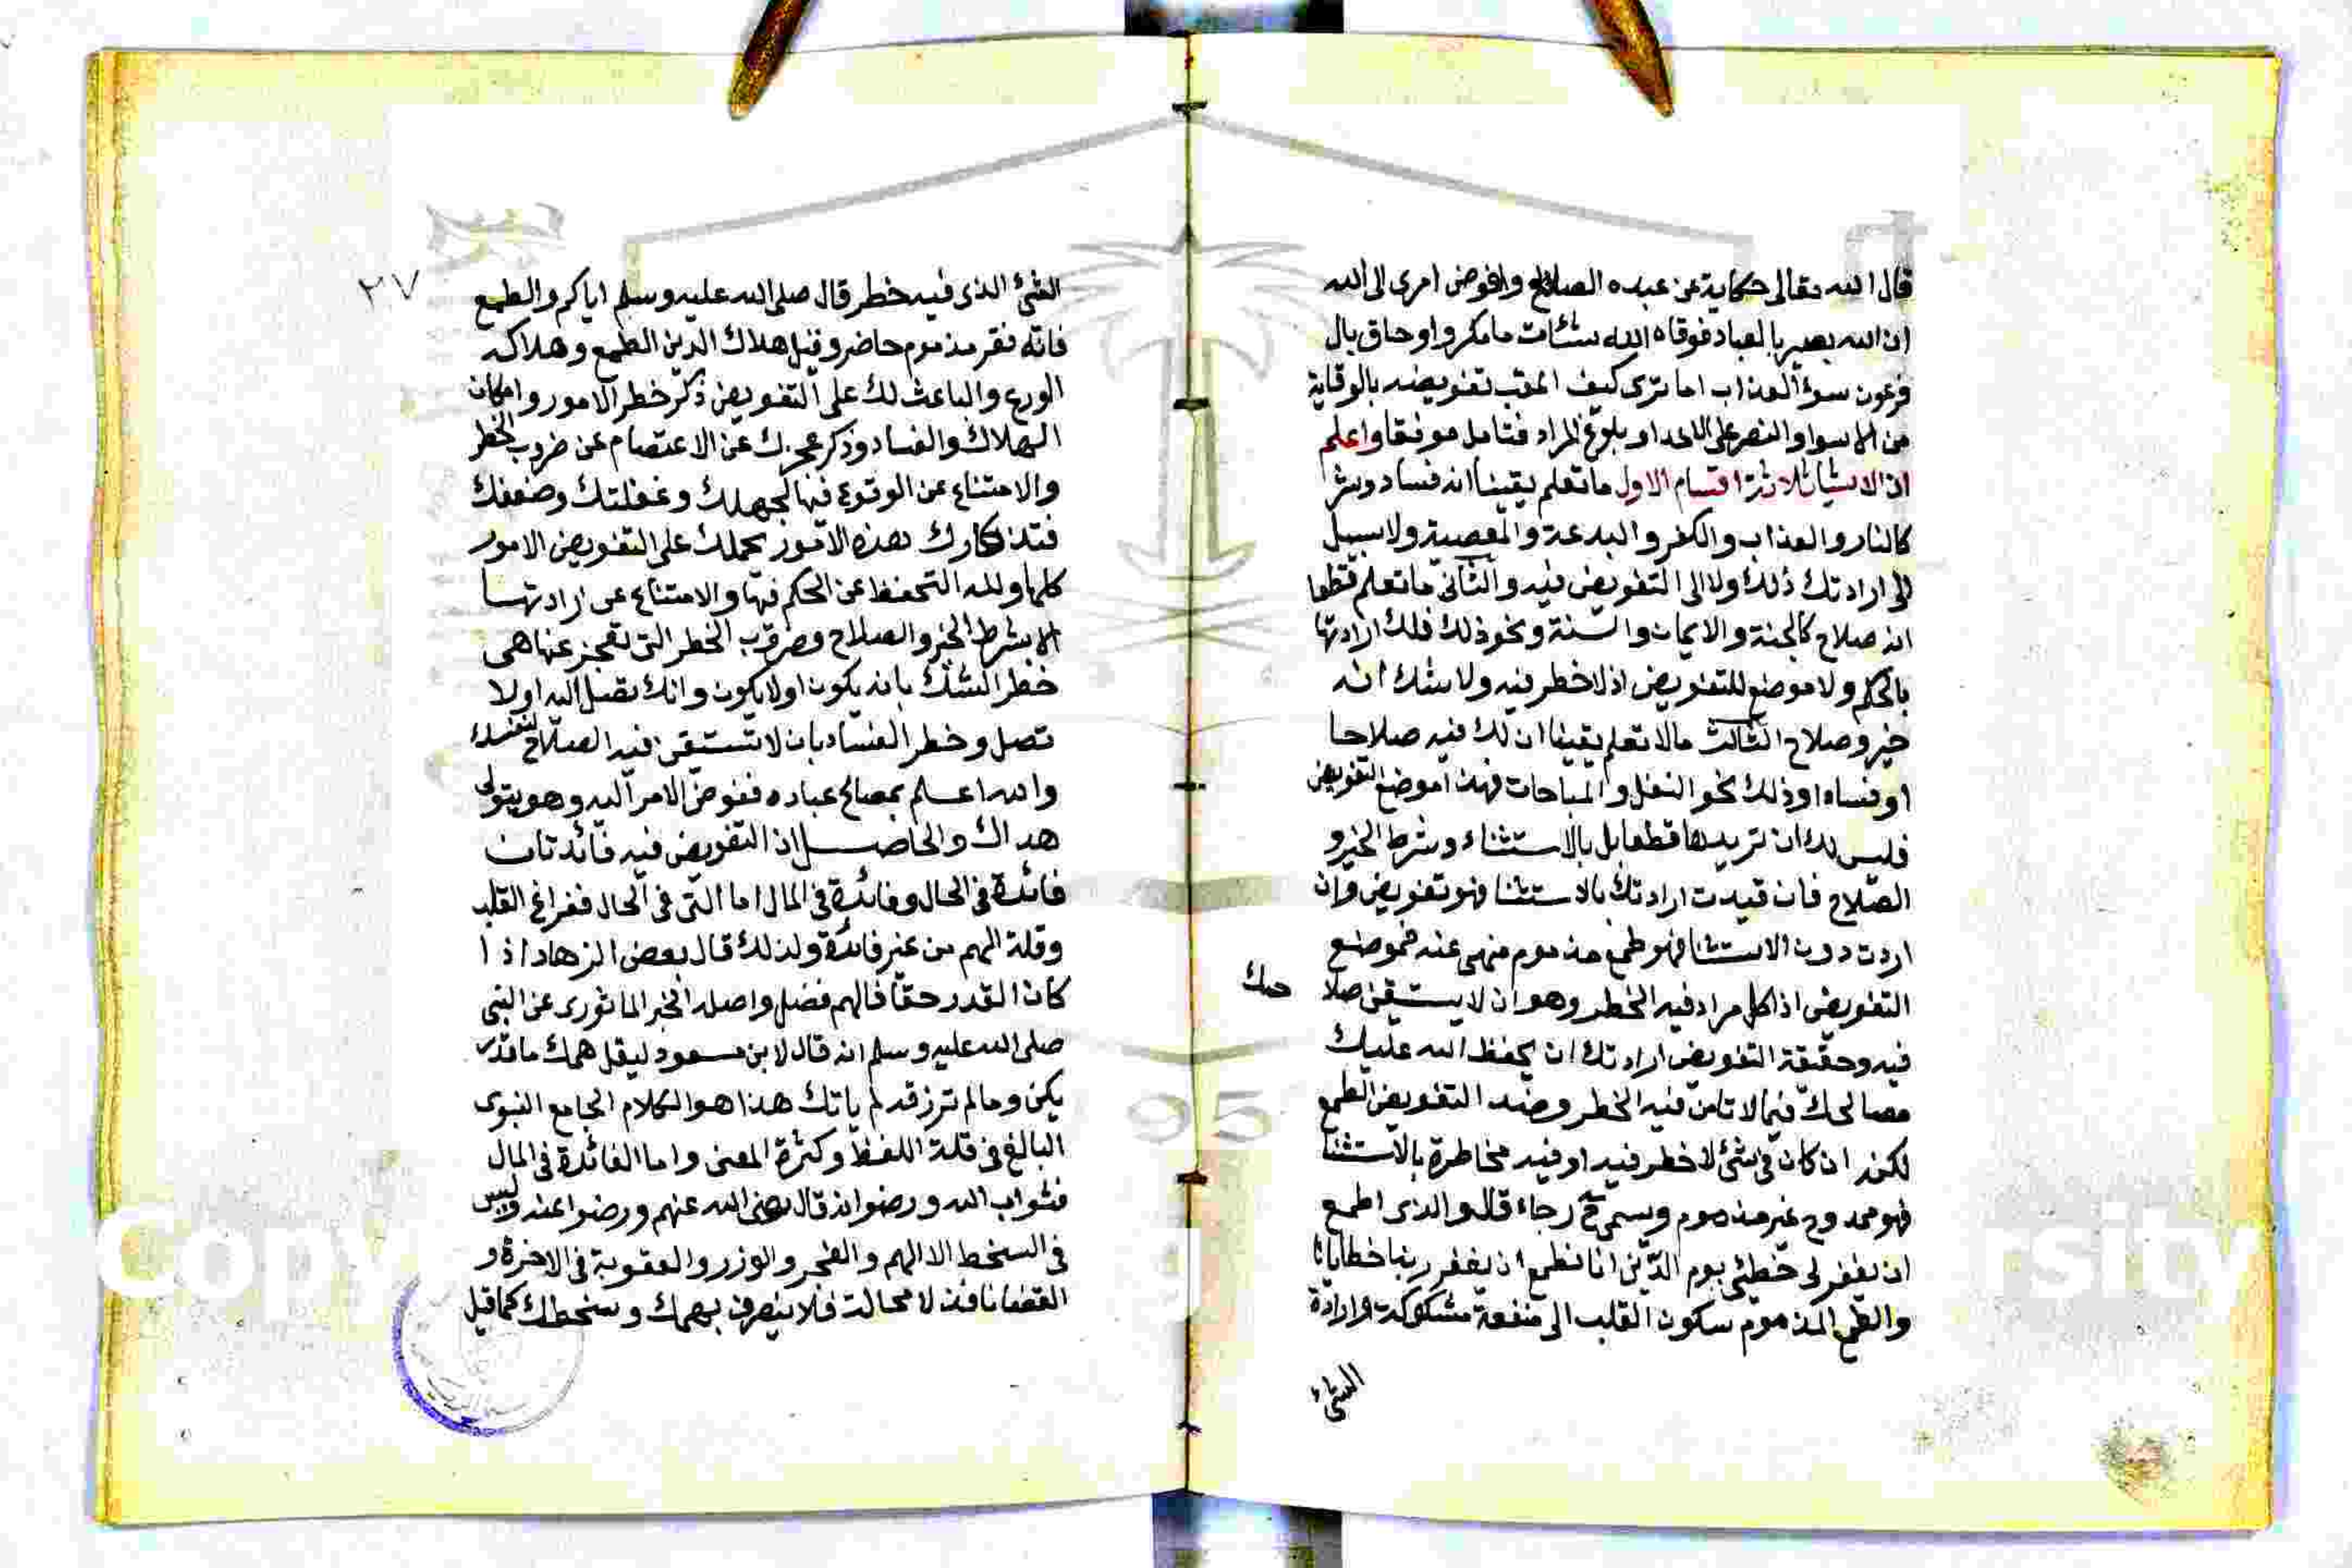 قال الله تعالى حكاية عن عبده الصالح وافوض امرى الى الله
ان الله بصير بالعباد فوقاه الله سيئات ما مكروا وحاق بال
فرعون سوء العذاب اما ترى كيف اعقب تفويضه بالوقاية
من الاسوا والنصر على الاعدا وبلوغ المراد فتامل موفقا واعلم
ان الاشيا ثلاثة اقسام الاول ما تعلم يقينا انه فساد وشر
كالنار والعذاب والكفر والبدعة والمعصية ولا سبيل
الى ارادتك ذلك ولا الى التفويض فيه والثانى ما تعلم قطعا
انه صلاح كالجنة والايمان والسنة ونحو ذلك فلك ارادتها
بالحكم ولا موضع للتفويض اذ لا خطر فيه ولا شك انه
خير وصلاح الثالث ما لا تعلم يقينا ان لك فيه صلاحا
او فسادا وذلك نحو النفل والمباحات فهذا موضع التفويض
فليس لك ان تريدها قطعا بل بالاستثناء وشرط الخير و
الصلاح فان قيدت ارادتك بالاستثنا فهو تفويض وان
اردت دون الاستثنا فهو طمع مذموم منهى عنه فموضع
التفويض اذا كل مراد فيه الخطر وهو ان لا يستيقن صلا
حك
فيه وحقيقة التفويض ارادتك ان يحفظ الله عليك
مصالحك فيما لا تامن فيه الخطر وضد التفويض الطمع
لكنه ان كان فى شئ لا خطر فيه او فيه مخاطرة بالاستثنا
فهو ممدوح غير مذموم ويسمى ح رجاء قال والذى اطمع
ان يغفر لى خطيئتى يوم الدين انا نطمع ان يغفر ربنا خطايانا
والطمع المذموم سكون القلب الى منفعة مشكوكة وارادة
الشئ
٢٧
الشئ الذى فيه خطر قال صلى الله عليه وسلم اياكم والطمع
فانه فقر مذموم حاضر وقيل هلاك الدين الطمع وهلاكه
الورع والباعث لك على التفويض ذكر خطر الامور وامكان
الهلاك والفساد وذكر عجزك عن الاعتصام عن ضروب الخطر
والامتناع عن الوقوع فيها لجهلك وغفلتك وضعفك
فتذكارك هذه الامور يحملك على التفويض الامور
كلها ولله التحفظ عن الحكم فيها والامتناع عن ارادتها
الا بشرط الخير والصلاح وضروب الخطر التى تعجز عنها هى
خطر الشك بانه يكون او لا يكون وانك تصل اليه او لا
تصل وخطر الفساد بان لا تستيقن فيه الصلاح لنفسك
والله اعلم بمصالح عباده ففوض الامر اليه وهو يتولى
هداك والحاصل اذ التفويض فيه فائدتان
فائدة فى الحال وفائدة فى المال اما التى فى الحال ففراغ القلب
وقلة الهم من غير فائدة ولذلك قال بعض الزهاد اذا
كان القدر حقا فالهم فضل واصله الخبر الماثور عن النبى
صلى الله عليه وسلم انه قال لابن مسعود ليقل همك ما قدر
يكن وما لم ترزق لم ياتك هذا هو الكلام الجامع النبوى
البالغ فى قلة اللفظ وكثرة المعنى واما الفائدة فى المال
فثواب الله ورضوانه قال رضى الله عنهم ورضوا عنه وليس
فى السخط الا الهم والضجر والوزر والعقوبة فى الاخرة و
القضا نافذ لا محالة فلا ينصرف بهمك وسخطك كما قيل